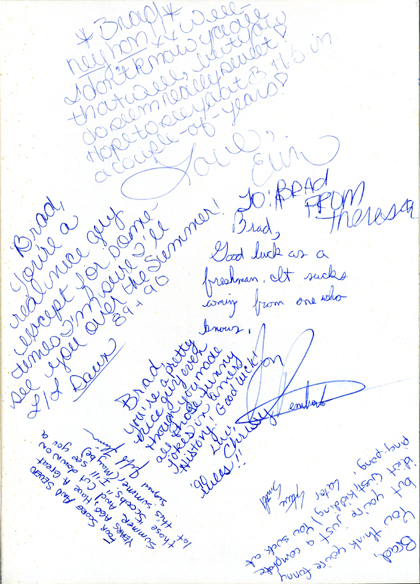 *Brad!*
hey hon! Well-
I don't know you all
that well, but you
do seem really sweet!
Hope to see ya at B.H.S in
a couple-of-years!
Love,
Erin
To: BRAD
FROM
Theresa
Brad,
You're a
real nice guy
except for some-
times I'm sure I'll
see you over the summer!
89+90
L/L Dawn
Brad,
Good luck as a
freshman. It sucks
coming from one who
knows,
Jon
Brad,
you're a pretty
nice guy even
though you made
all those funny
jokes in Amer.
History! Good luck!
Luv,
Christy
'Guess!!
FOUR SCORE AND SEVEN
YEARS AGO, HAVE A GREAT
SUMMER AND CUT down on
the Scochs I'll be seeing you a
lot this summer, maybe
Brad,
You think you're funny
but you're just a complete
idiot (just kidding) You suck at
ping-pong
Later